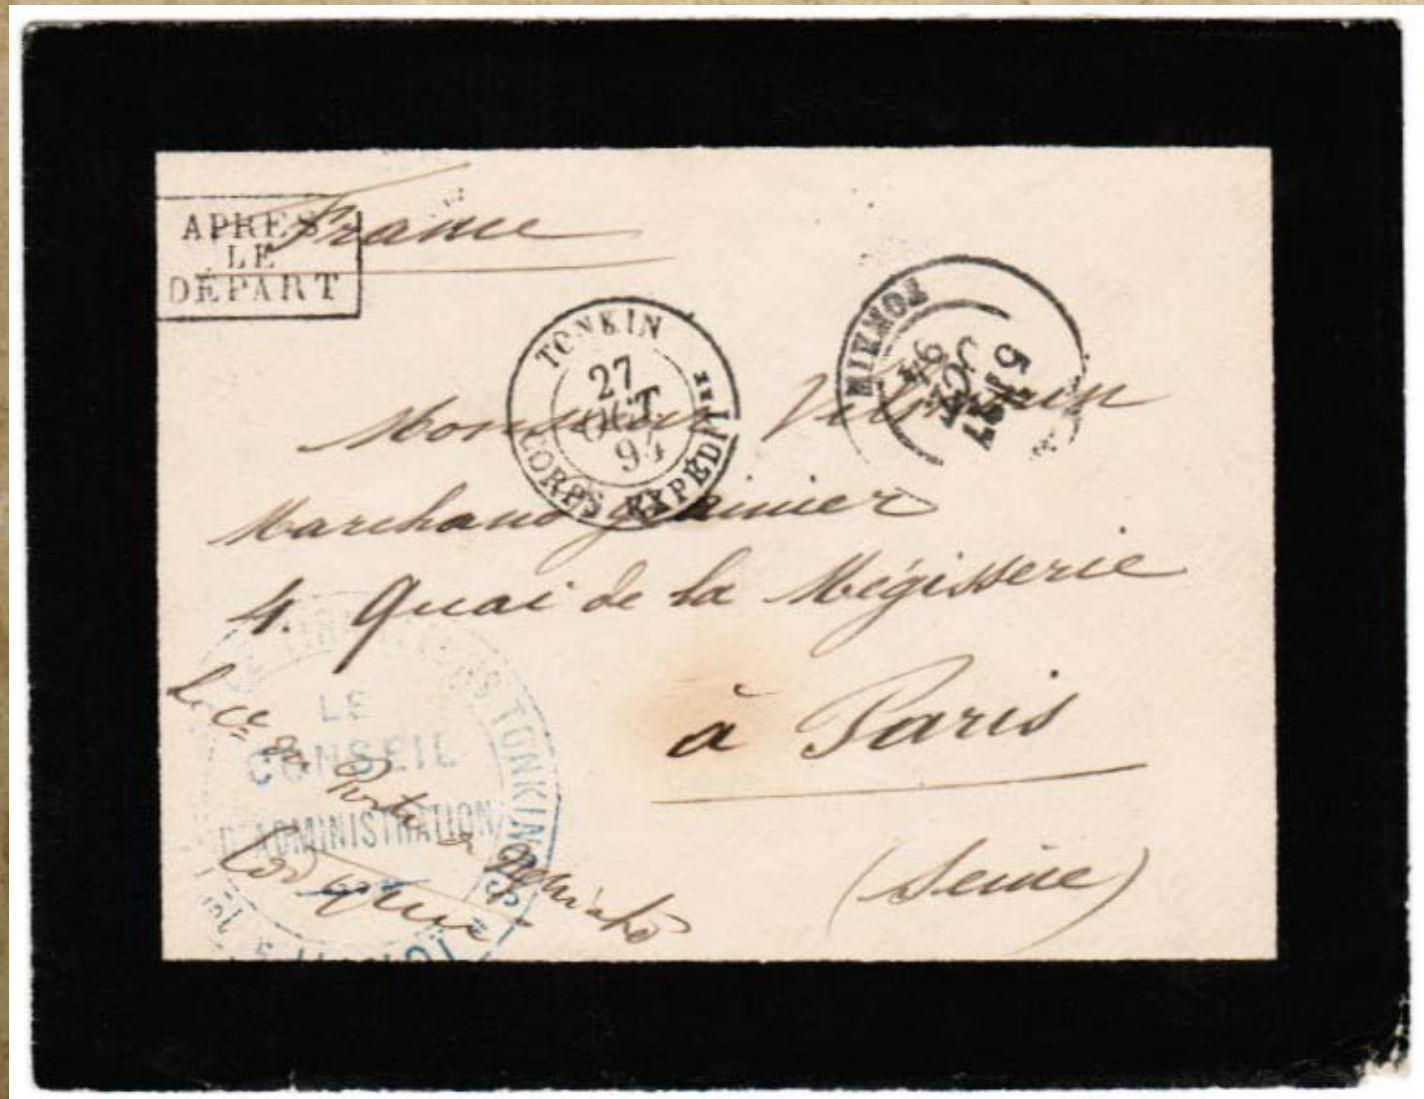 APRES
LE
DÉPART
France
TONKIN
27
OCT
94
CORPS EXPÉDIT
5
OCT
94
TONKIN
Monsieur Vilmorin
Marchand grainier
4. Quai de la Mégisserie
à Paris
(Seine)
TIRAILLEURS TONKINOIS
LE
CONSEIL
D'ADMINISTRATION